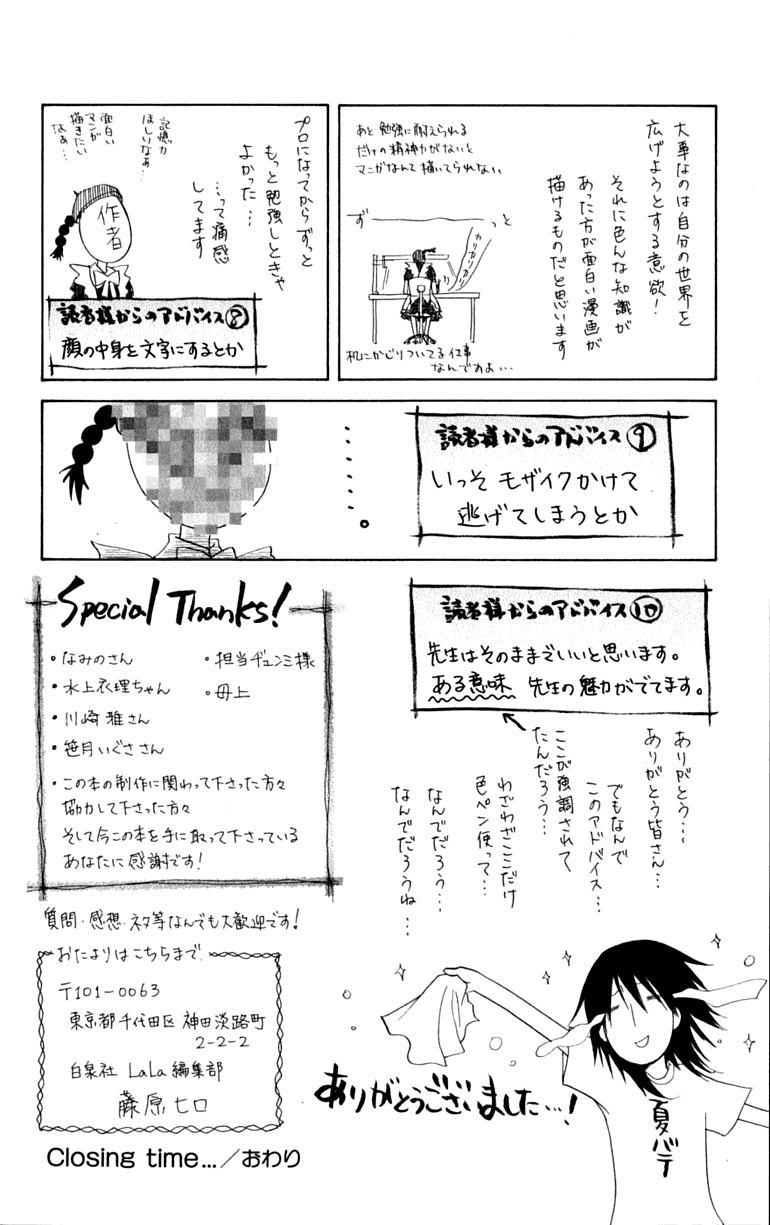 大事なのは自分の世界を
広げようとする意欲!
それに色んな知識が
あった方が面白い漫画が
描けるものだと思います
あと勉強に耐えられる
だけの精神力がないと
マンガなんて描いてられない
ず
っと
カリカリカリカリ
机にかじりついてる仕事
なんですよ…
プロになってからずっと
もっと勉強しときゃ
よかった…
…って痛感
してます
記憶力
ほしいなぁ…
面白い
マンガ
描きたい
なぁ…
作者
読者様からのアドバイス⑧
顔の中身を文字にするとか
読者様からのアドバイス⑨
いっそモザイクかけて
逃げてしまうとか
……。
読者様からのアドバイス⑩
先生はそのままでいいと思います。
ある意味 先生の魅力がでてます。
ありがとう…
ありがとう皆さん…
でもなんで
このアドバイス…
ここが強調されて
たんだろう…
わざわざここだけ
色ペン使って…
なんでだろう…
なんでだろうね…
Special Thanks!
・なみのさん
・水上衣理ちゃん
・川崎雅さん
・笹月いぐささん
・担当ヂュンミ様
・母上
・この本の制作に関わって下さった方々
協力して下さった方々
そして今この本を手に取って下さっている
あなたに感謝です!
質問・感想・ネタ等なんでも大歓迎です!
おたよりはこちらまで
〒101-0063
東京都千代田区神田淡路町
2-2-2
白泉社 LaLa編集部
藤原ヒロ
ありがとうございました…!
夏バテ
Closing time…／おわり